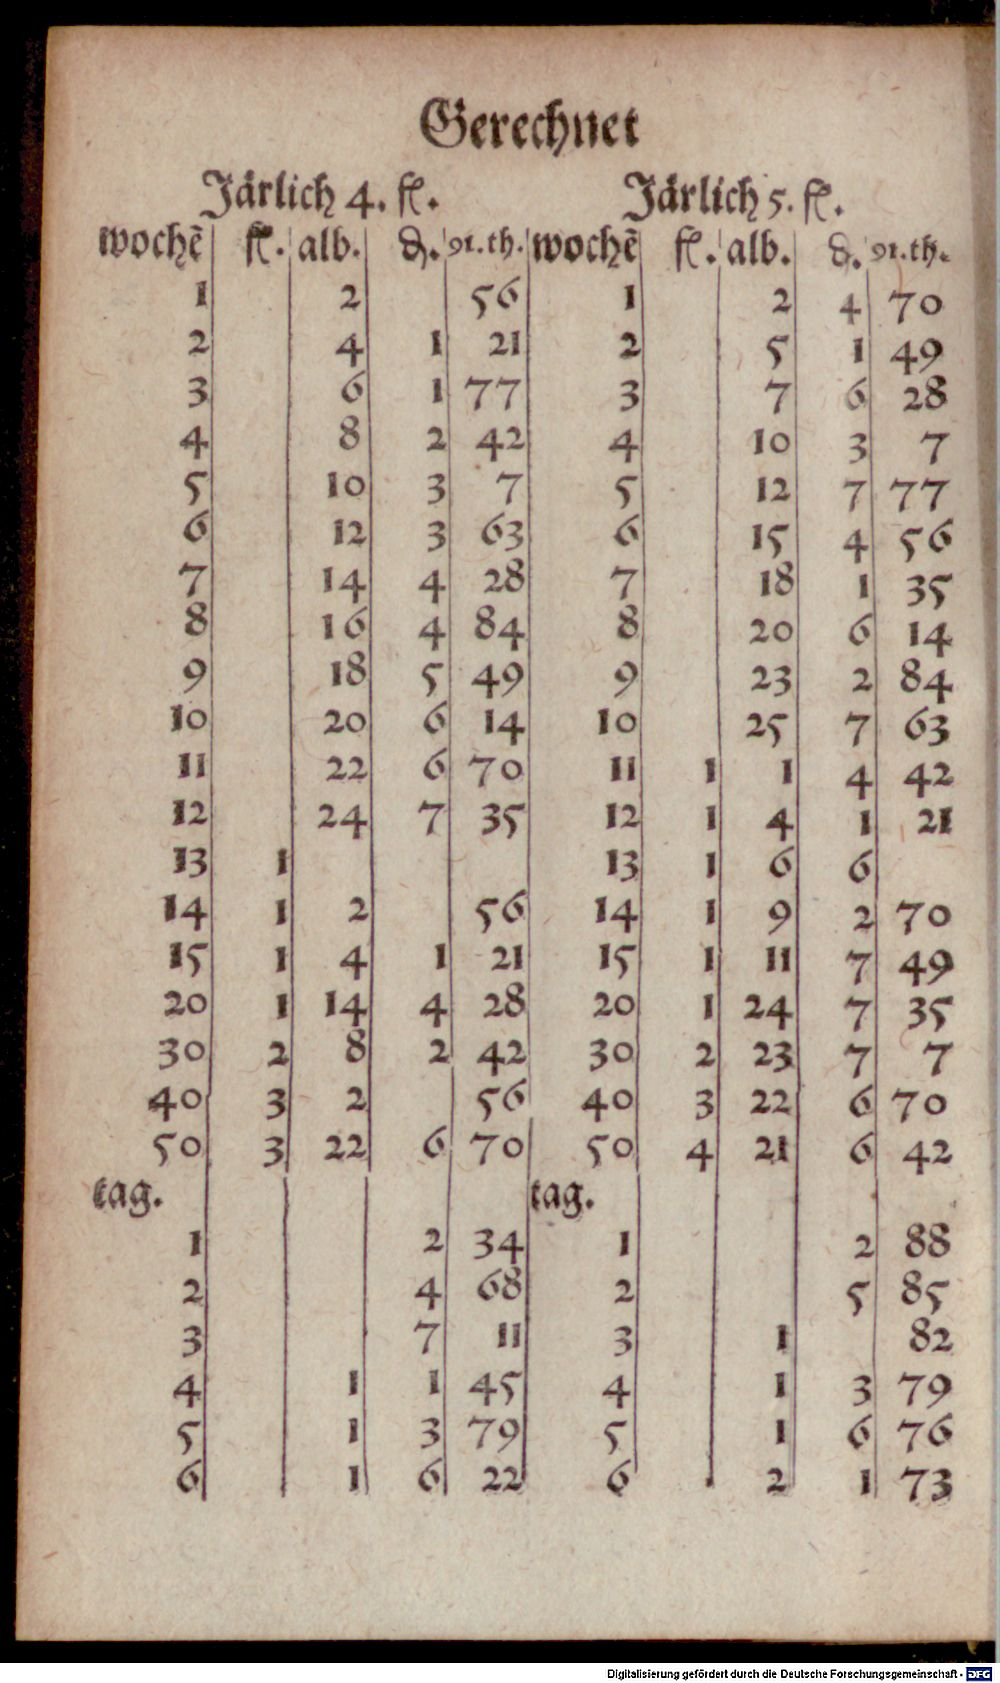 Gerechnet
Järlich 4. fl. Järlich 5. fl.
wochẽ fl. alb. ₰. 91.th. wochẽ fl. alb. ₰. 91.th.
1 2 56 1 2 4 70
2 4 1 21 2 5 1 49
3 6 1 77 3 7 6 28
4 8 2 42 4 10 3 7
5 10 3 7 5 12 7 77
6 12 3 63 6 15 4 56
7 14 4 28 7 18 1 35
8 16 4 84 8 20 6 14
9 18 5 49 9 23 2 84
10 20 6 14 10 25 7 63
11 22 6 70 11 1 1 4 42
12 24 7 35 12 1 4 1 21
13 1 13 1 6 6
14 1 2 56 14 1 9 2 70
15 1 4 1 21 15 1 11 7 49
20 1 14 4 28 20 1 24 7 35
30 2 8 2 42 30 2 23 7 7
40 3 2 56 40 3 22 6 70
50 3 22 6 70 50 4 21 6 42
tag. tag.
1 2 34 1 2 88
2 4 68 2 5 85
3 7 11 3 1 82
4 1 1 45 4 1 3 79
5 1 3 79 5 1 6 76
6 1 6 22 6 2 1 73
Digitalisierung gefördert durch die Deutsche Forschungsgemeinschaft - DFG